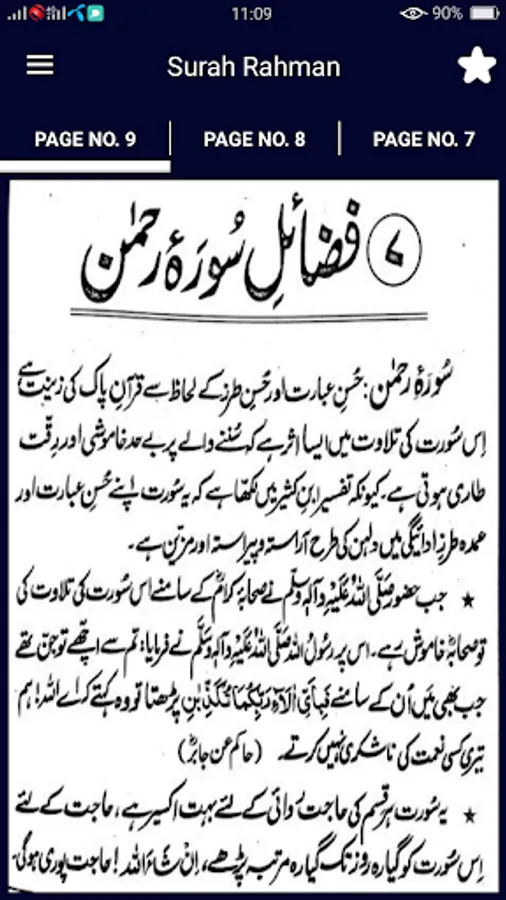 11:09
90%
Surah Rahman
PAGE NO. 9
PAGE NO. 8
PAGE NO. 7
۷ فضائلِ سُورَۂ رحمٰن
سُورَۂ رحمٰن: حُسنِ عبارت اور حُسنِ طرز کے لحاظ سے قرآنِ پاک کی زینت ہے
اِس سُورت کی تلاوت میں ایسا اثر ہے کہ سُننے والے پر بے حد خاموشی اور رِقّت
طاری ہوتی ہے۔ کیونکہ تفسیر ابنِ کثیر میں لکھا ہے کہ یہ سُورت اپنے حُسنِ عبارت اور
عمدہ طرزِ ادائیگی میں دلہن کی طرح آراستہ و پیراستہ اور مزیّن ہے۔
★ جب حضور صَلَّی اللہُ عَلَیْہِ وَآلِہٖ وَسَلَّم نے صحابۂ کرامؓ کے سامنے اس سُورت کی تلاوت کی
تو صحابہؓ خاموش رہے۔ اس پر رسولُ اللہ صَلَّی اللہُ عَلَیْہِ وَآلِہٖ وَسَلَّم نے فرمایا: تم سے اچھّے تو جِنّ تھے
جب بھی میں اُن کے سامنے فَبِاَیِّ اٰلَآءِ رَبِّکُمَا تُکَذِّبٰنِ پڑھتا تو وہ کہتے کہ اے اللہ! ہم
تیری کسی نعمت کی ناشکری نہیں کرتے۔ (حاکم عن جابرؓ)
★ یہ سُورت ہر قسم کی حاجت رَوائی کے لئے بہت اکسیر ہے، حاجت کے لئے
اِس سُورت کو گیارہ روز تک گیارہ مرتبہ پڑھے، اِنْ شَآءَ اللہ! حاجت پوری ہوگی۔